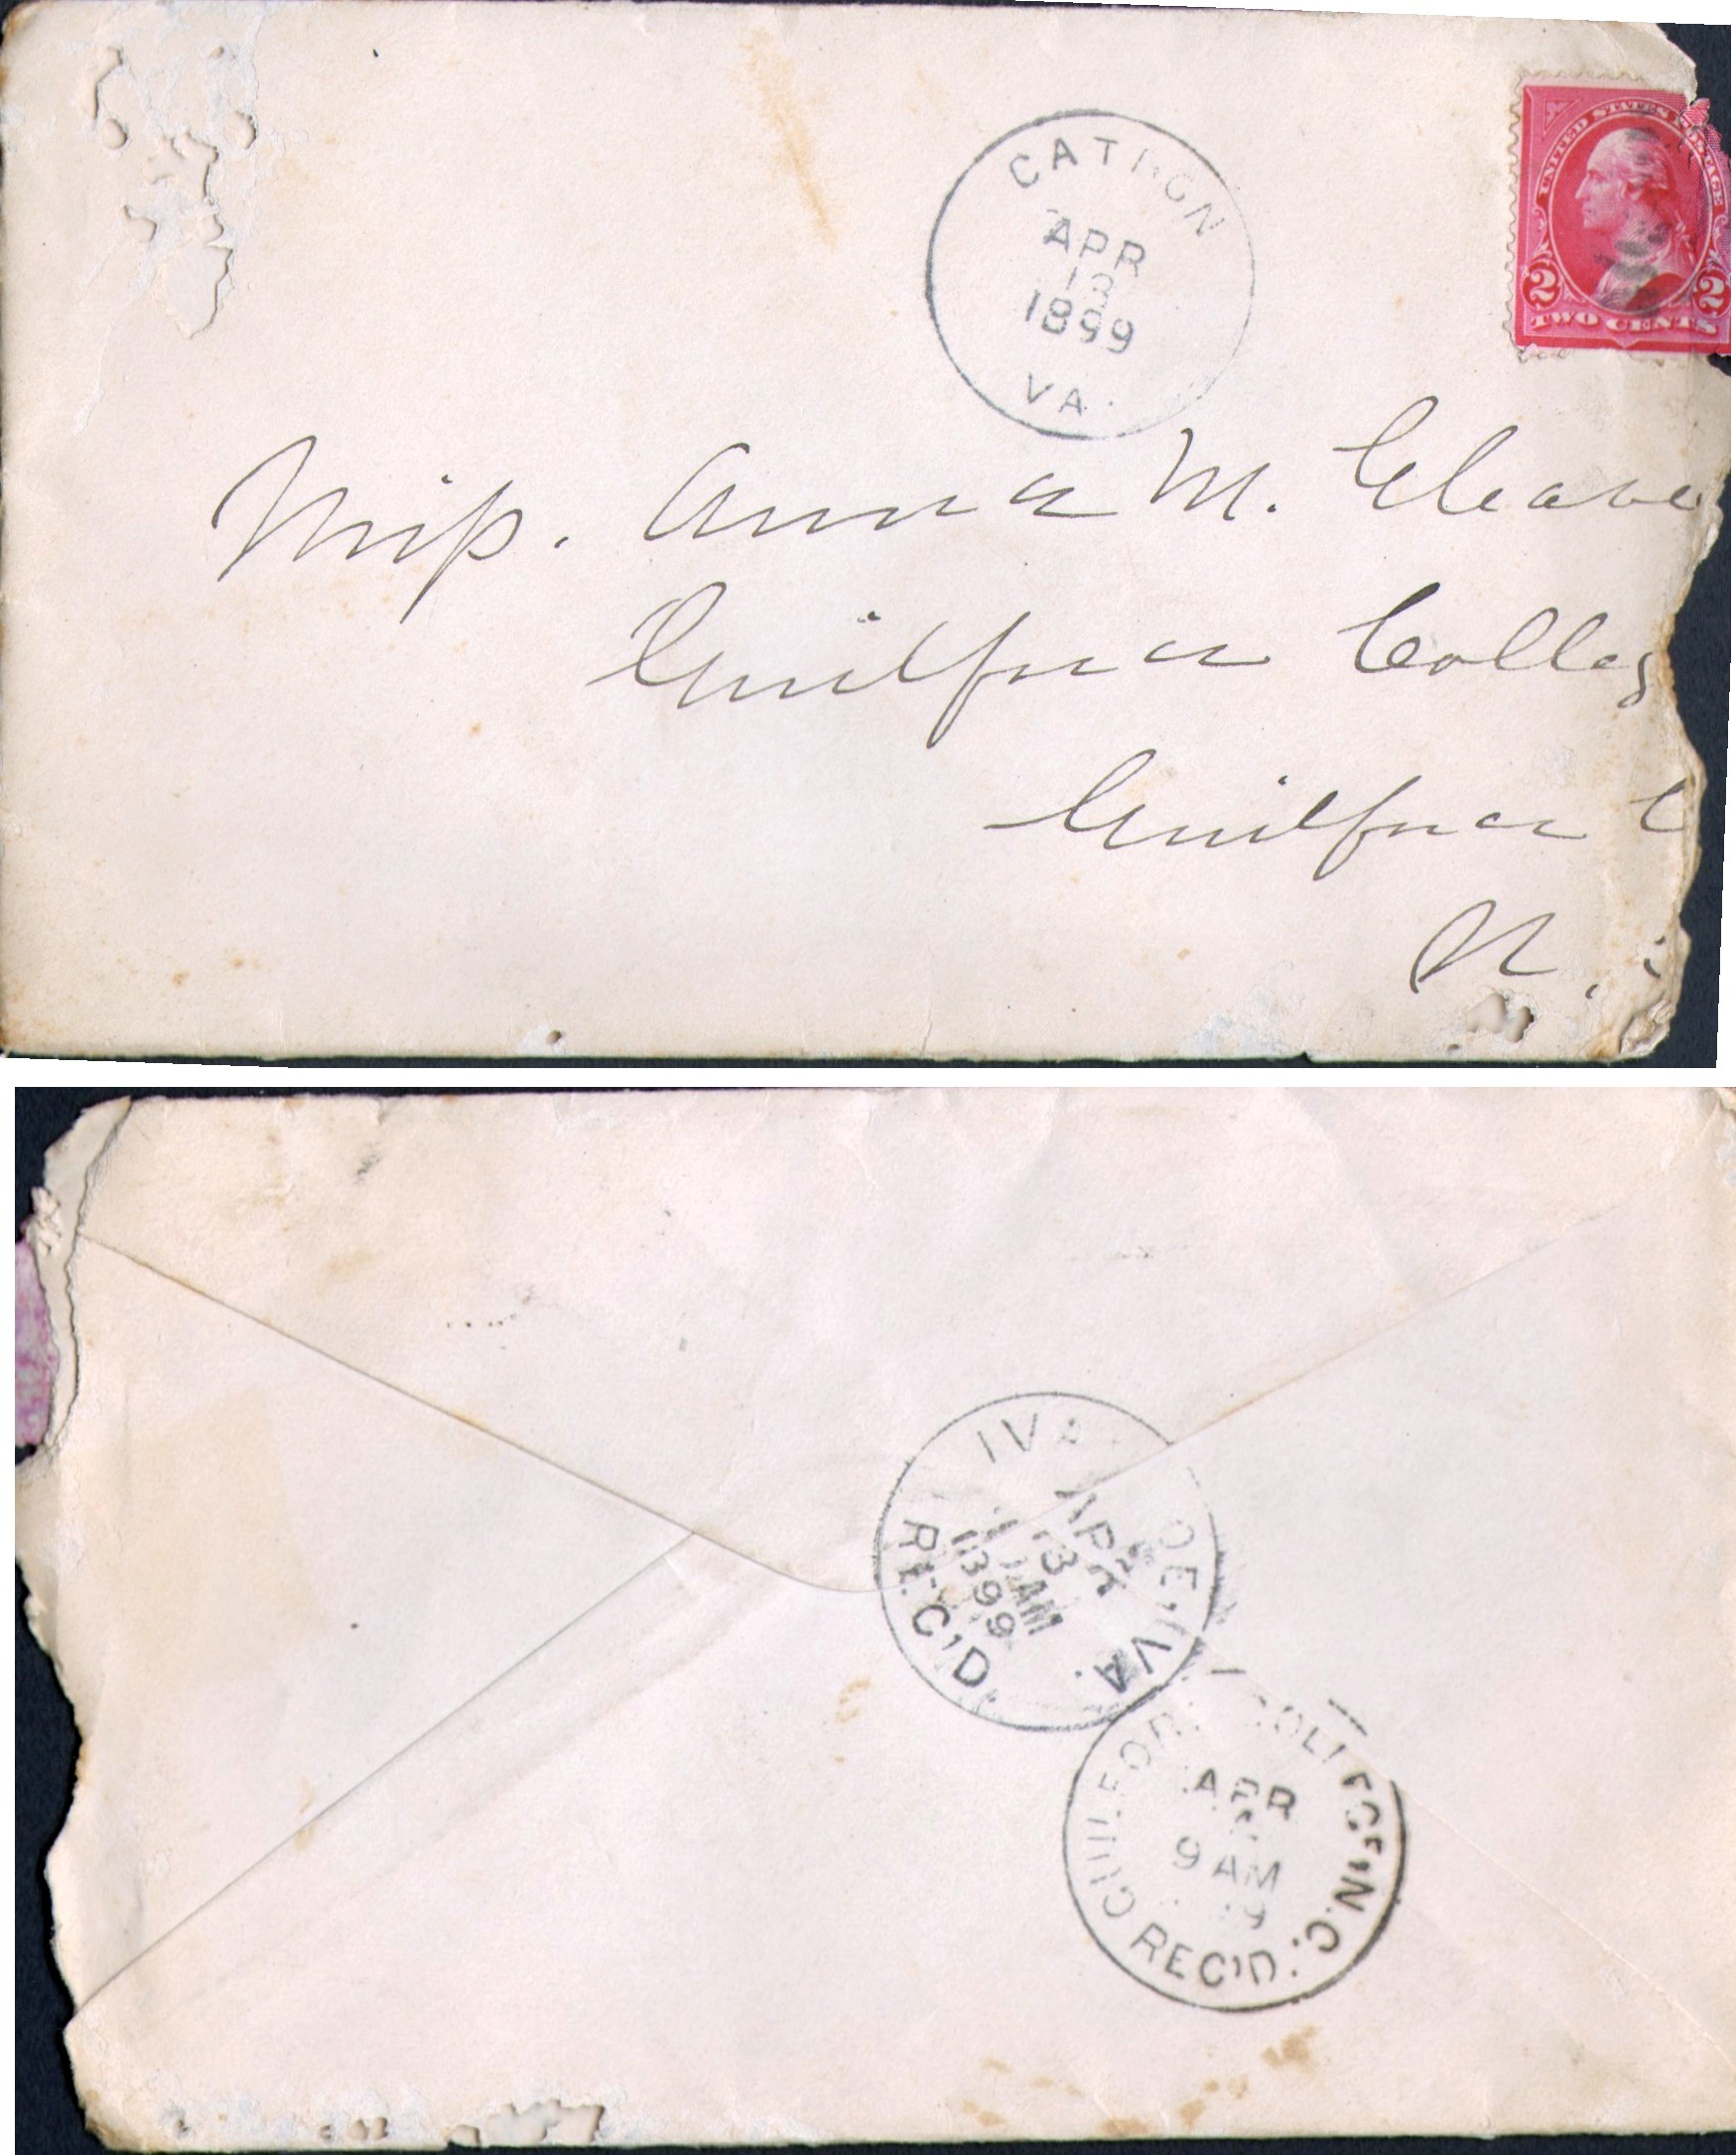 CATRON
APR
13
1899
VA.
UNITED STATES POSTAGE
2 2
TWO CENTS
Miss. Anna M. Cleave
Guilford Colleg
Guilford C
N.
IVA
OE, VA.
APR
13
11 AM
1899
REC'D.
GUILFORD COLLEGE, N.C.
APR
9 AM
REC'D.